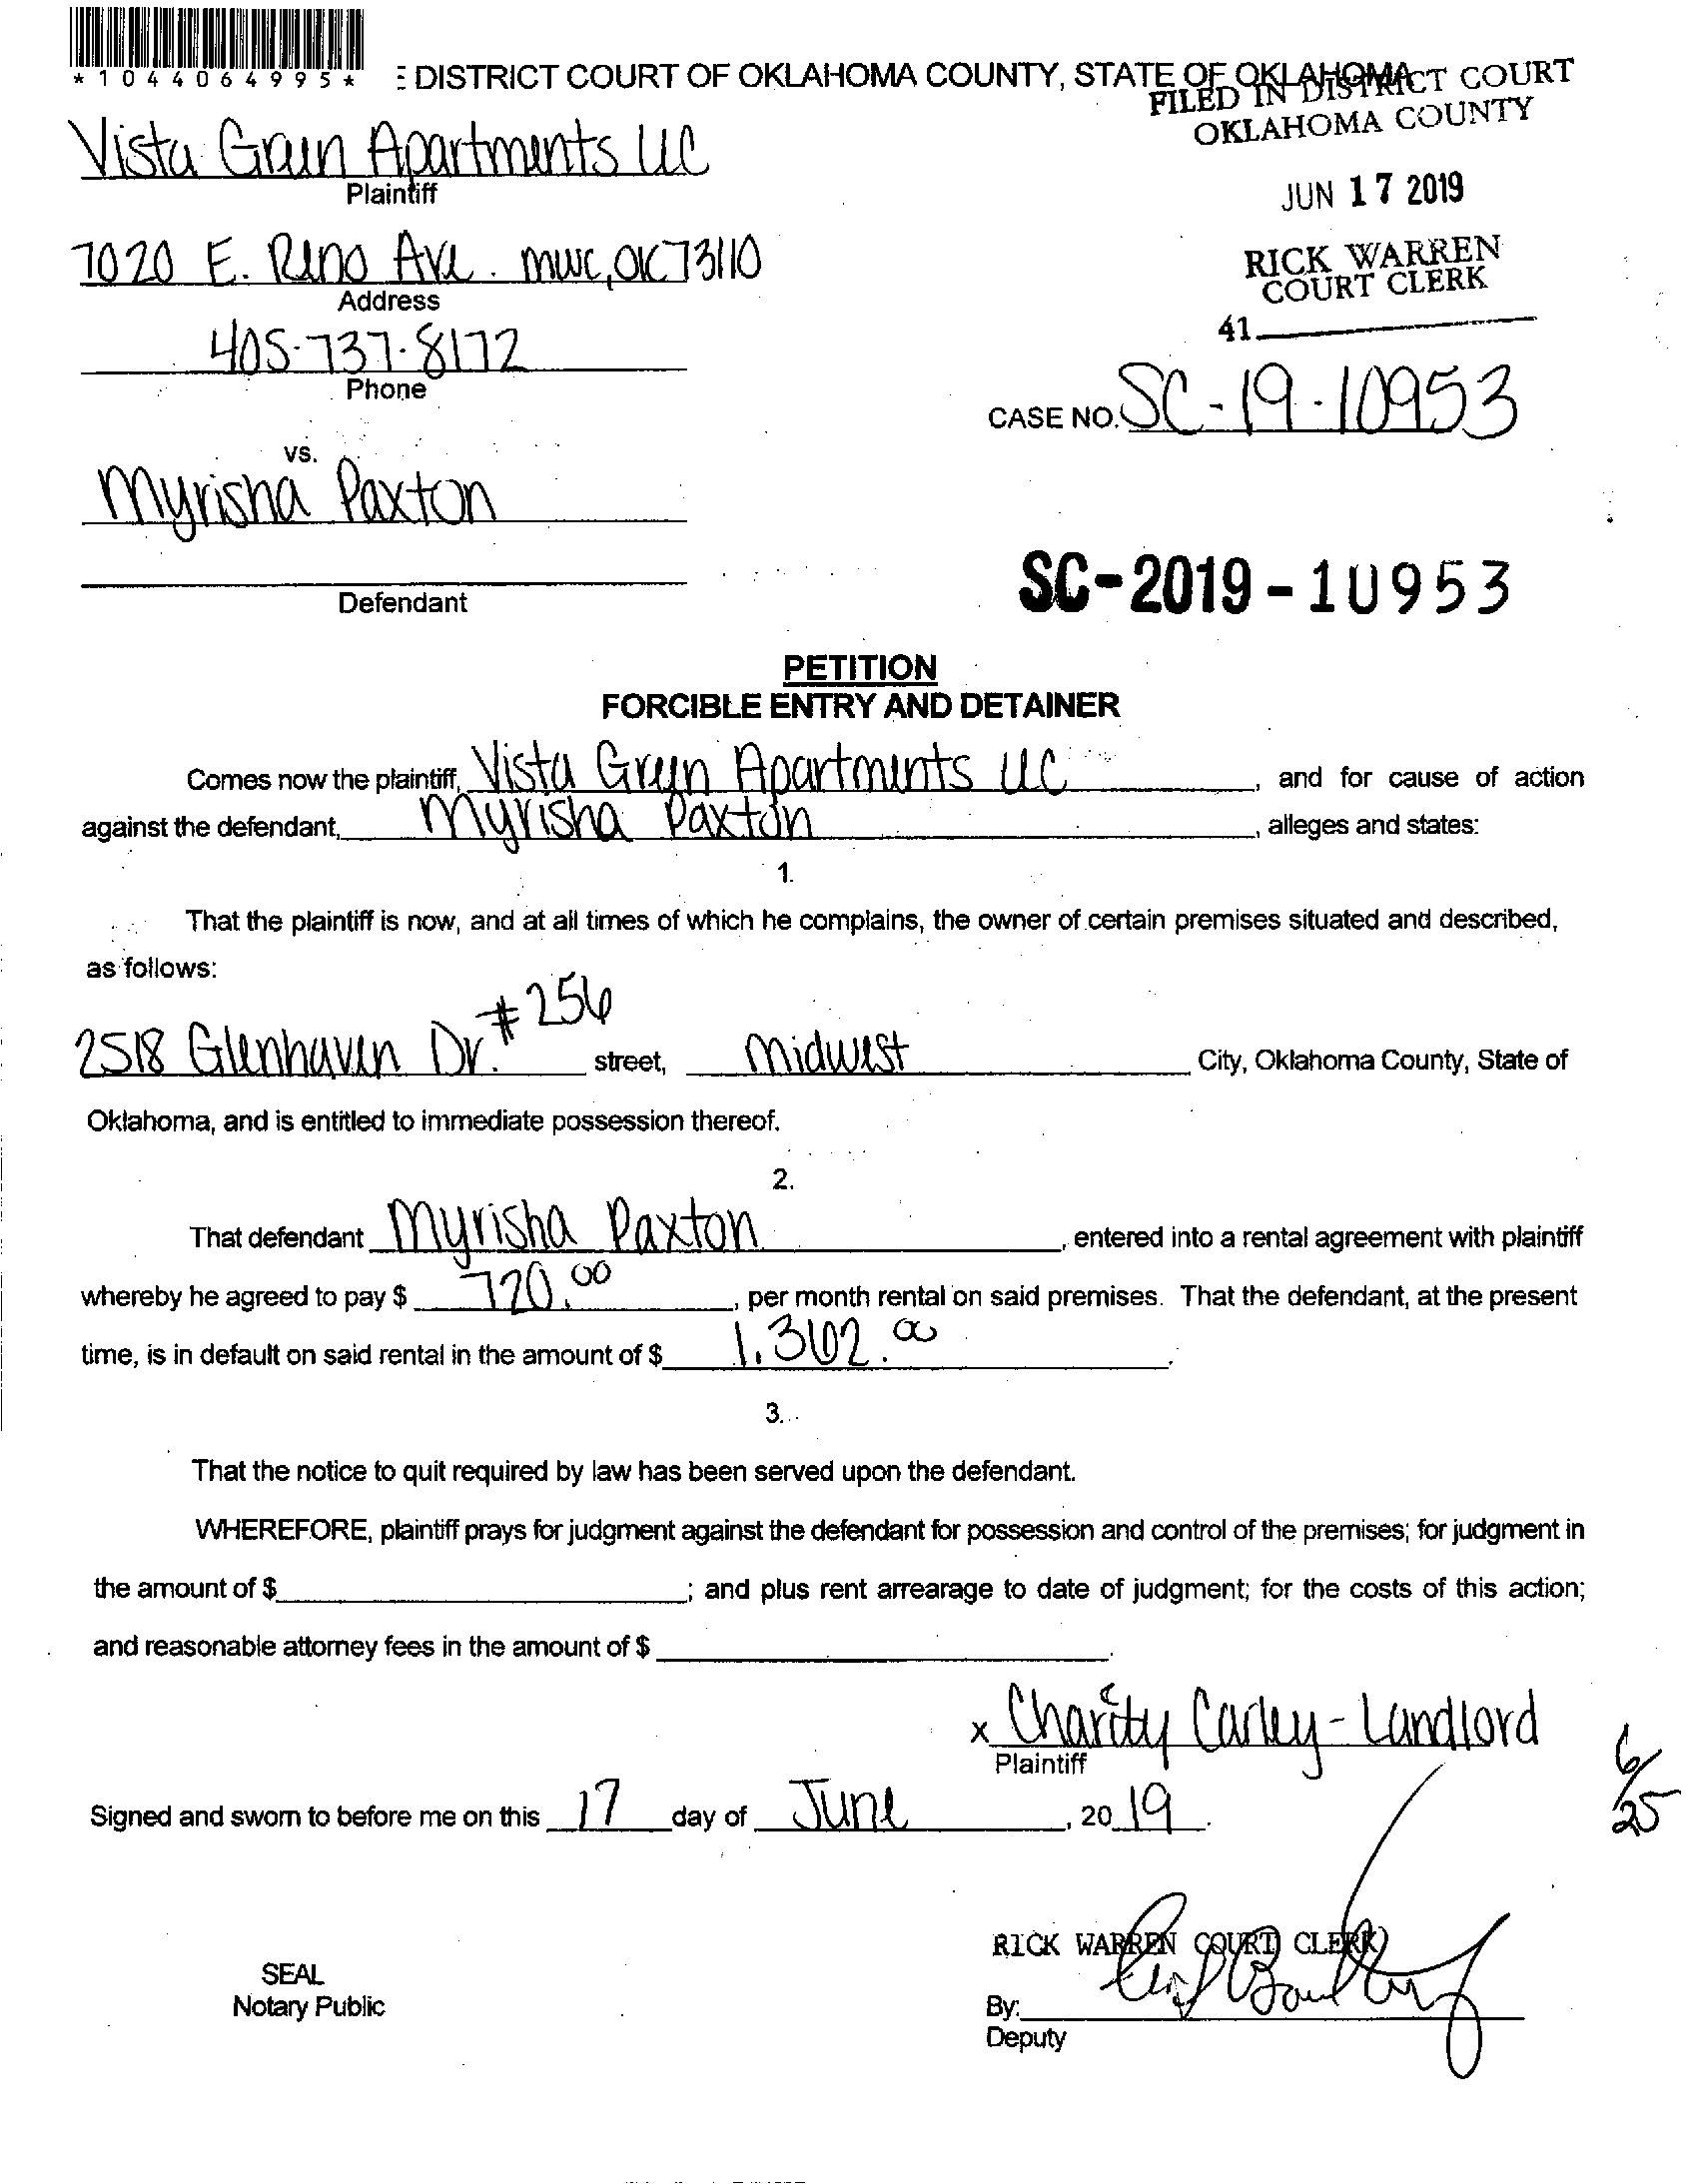 *1044064995*
DISTRICT COURT OF OKLAHOMA COUNTY, STATE OF OKLAHOMA
FILED IN DISTRICT COURT
OKLAHOMA COUNTY
JUN 17 2019
RICK WARREN
COURT CLERK
41
Vista Green Apartments LLC
Plaintiff
7020 E. Reno Ave. MWC, OK 73110
Address
405-737-8172
Phone
CASE NO. SC-19-10953
vs.
Myrisha Paxton
Defendant
SC-2019-10953
PETITION
FORCIBLE ENTRY AND DETAINER
Comes now the plaintiff, Vista Green Apartments LLC, and for cause of action
against the defendant, Myrisha Paxton, alleges and states:
1.
That the plaintiff is now, and at all times of which he complains, the owner of certain premises situated and described,
as follows:
2518 Glenhaven Dr. #256 street, Midwest City, Oklahoma County, State of
Oklahoma, and is entitled to immediate possession thereof.
2.
That defendant Myrisha Paxton, entered into a rental agreement with plaintiff
whereby he agreed to pay $ 720.00, per month rental on said premises. That the defendant, at the present
time, is in default on said rental in the amount of $ 1,362.00.
3.
That the notice to quit required by law has been served upon the defendant.
WHEREFORE, plaintiff prays for judgment against the defendant for possession and control of the premises; for judgment in
the amount of $ ; and plus rent arrearage to date of judgment; for the costs of this action;
and reasonable attorney fees in the amount of $ .
x Charity Carley - Landlord
Plaintiff
6/25
Signed and sworn to before me on this 17 day of June, 20 19.
RICK WARREN COURT CLERK
SEAL
Notary Public
By:
Deputy